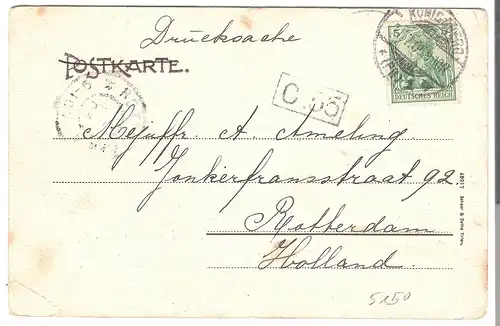 Drucksache
POSTKARTE.
5
KÖNIGSBERG
DEUTSCHES REICH
C.35
Mejuffr. A Ameling
Jonkerfransstraat 92
Rotterdam
Holland
5150